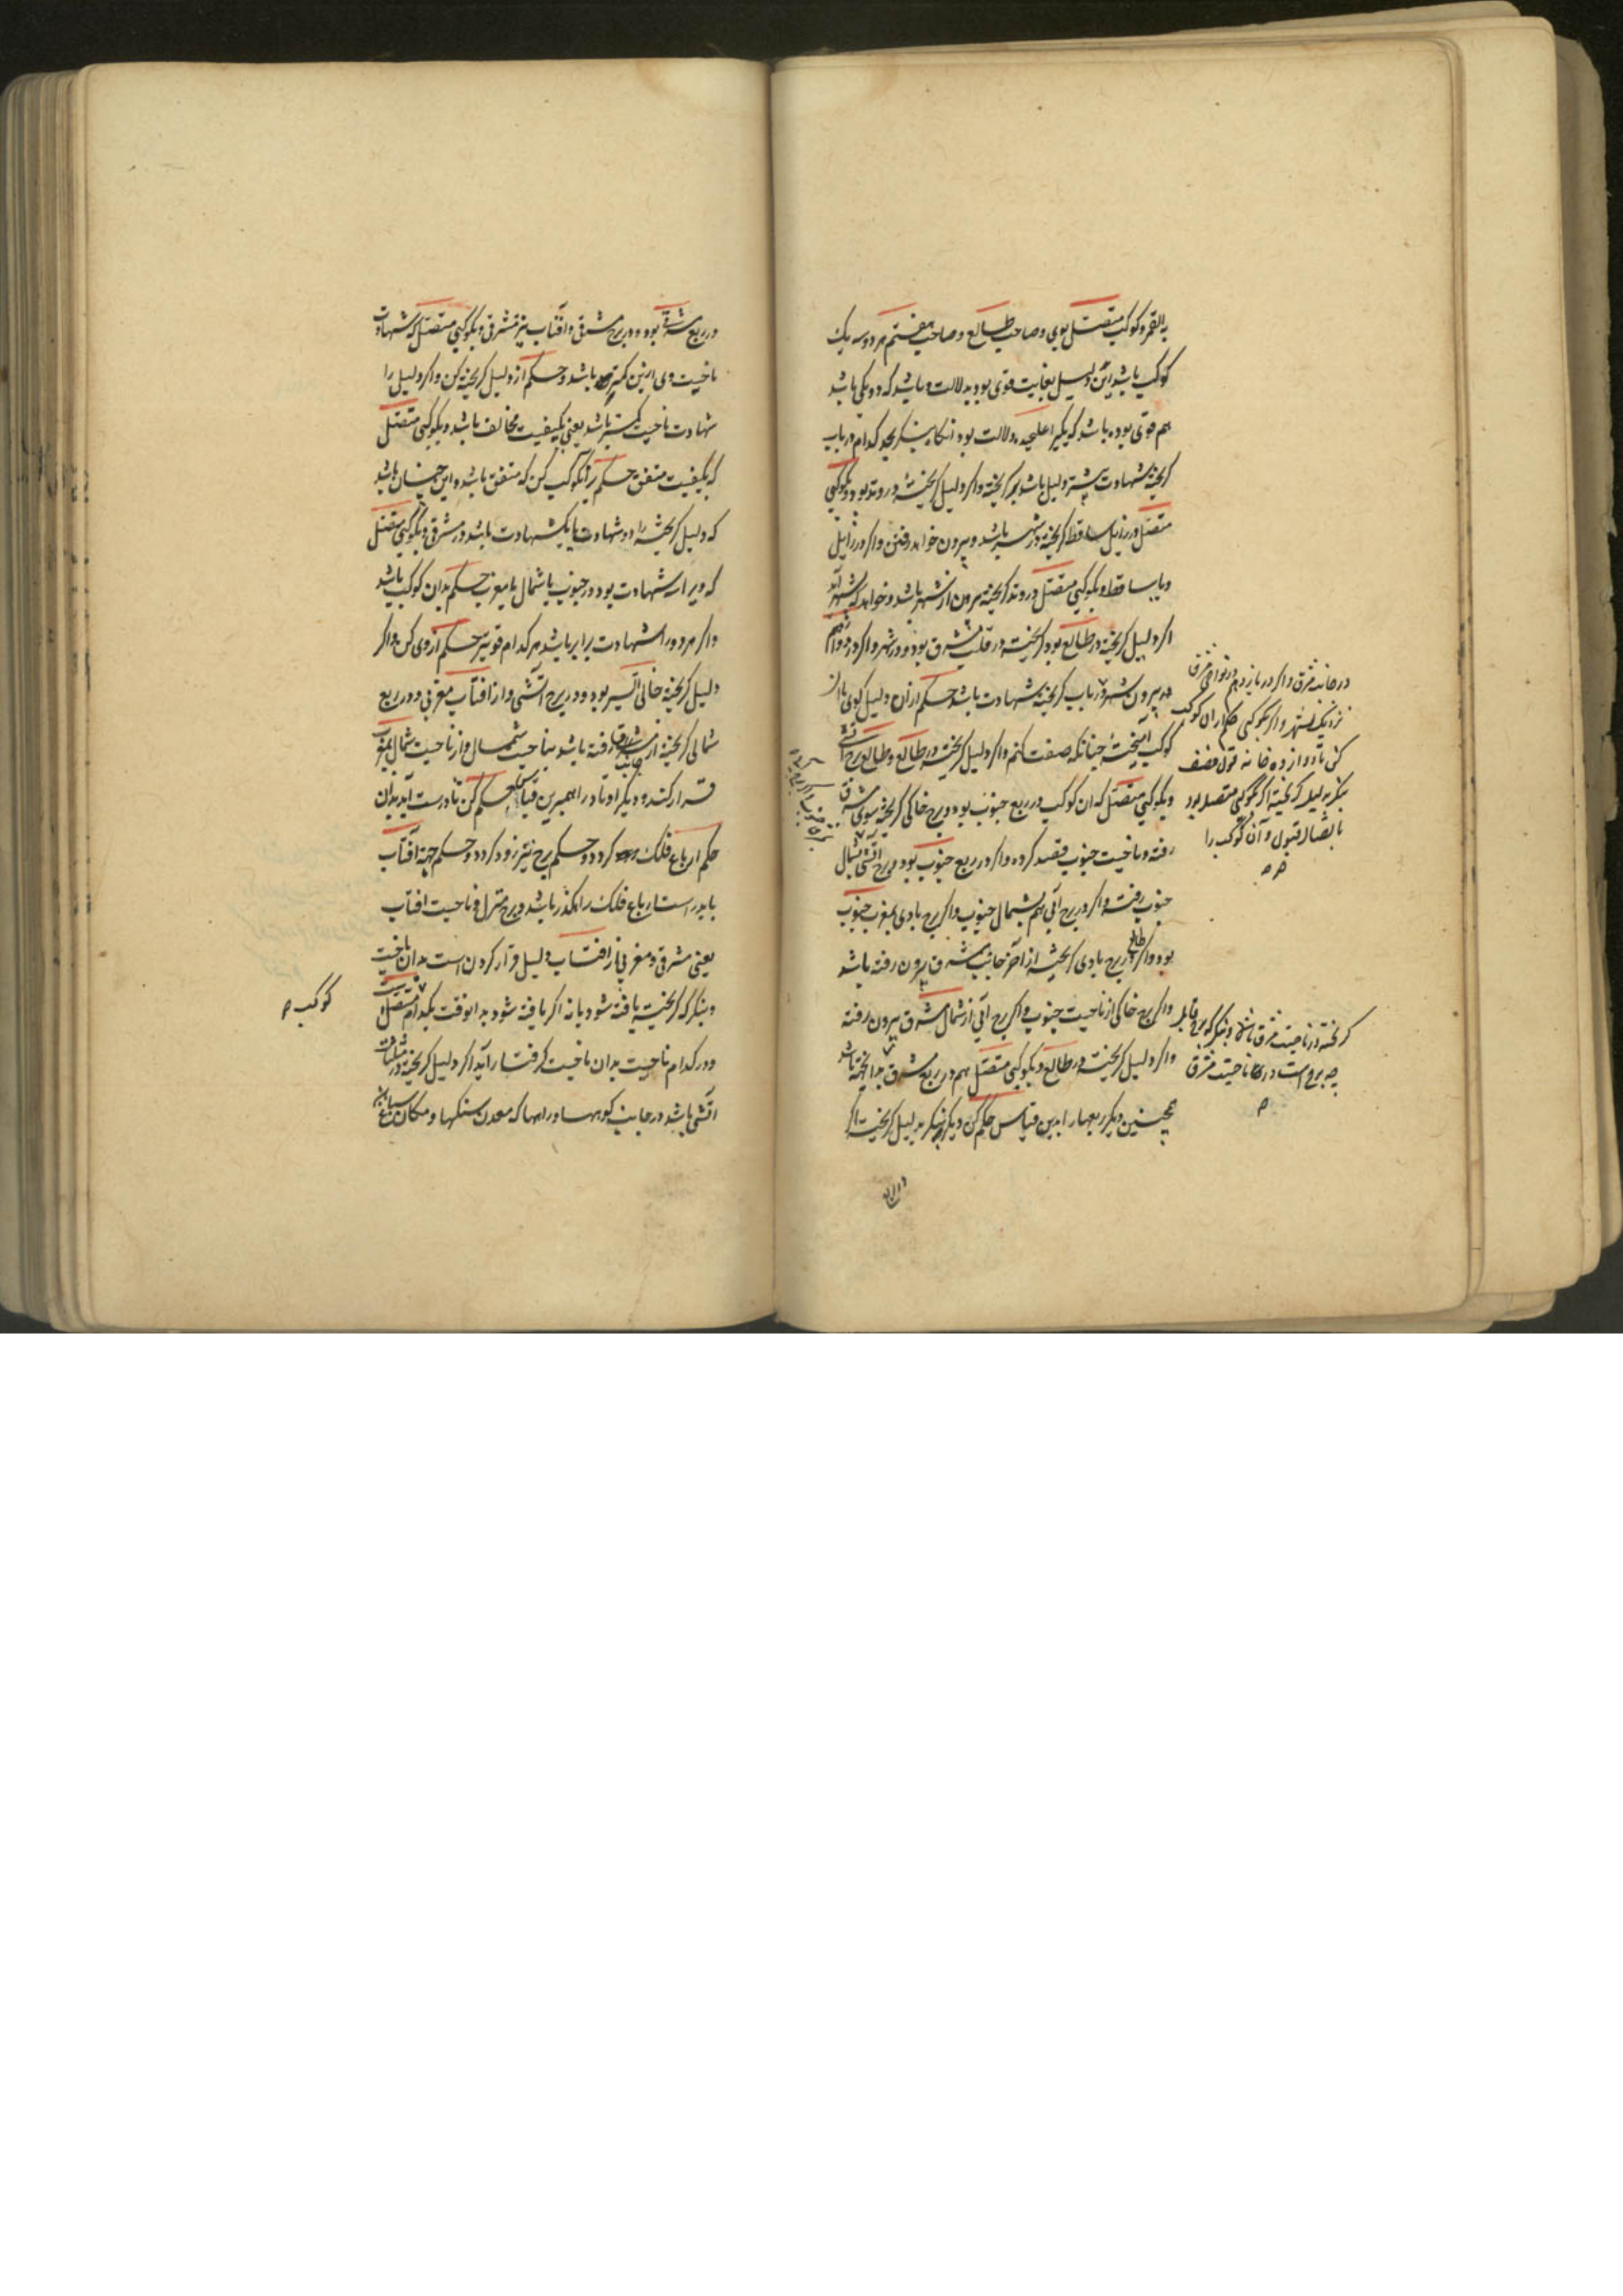 به القمر و کوکب متصل بوی و صاحب طالع و صاحب هفتم هر دو سه یک
کوکب باشد این دلیل بغایت قوی بود بدلالت و باشد که دو یکی باشد
هم قوی بوده باشد که یکیرا علیحده دلالت بود آنگاه بنگرید کدام در باب
کریخته شهادت بیشتر دلیل باشد بر کریخته و اکر دلیل کریخته در وتد بود و بکوکبی
متصل در زایل ساقط کریخته در شهر باشد و بیرون خواهد رفتن و اکر در زایل
و یا ساقط و بکوکبی متصل در وتد کریخته بیرون از شهر باشد و خواهد که بشهر آید
اکر دلیل کریخته در طالع بود کریخته در قلب مشرق بود و در شهر و اکر در دوازدهم
بیرون شهر و در باب کریخته شهادت باشد حکم از ان دلیل کوی با از
کوکب آمیخته چنانکه صفت کنم و اکر دلیل کریخته در طالع و طالع برج آتشی
و بکوکبی متصل که ان کوکب در ربع جنوب بود و برج خاکی کریخته بسوی مشرق
رفته و ناحیت جنوب قصد کرده و اکر در ربع جنوب بود و برج آتشی شمال
جنوب رفته و اکر در برج آبی هم بشمال جنوب و اکر برج بادی بمغرب جنوب
بود و اکر طالع برج بادی کریخته از آخر جانب مشرق بیرون رفته باشد
و اکر برج خاکی از ناحیت جنوب و اکر برج آبی از شمال مشرق بیرون رفته
و اکر دلیل کریخته در طالع و بکوکبی متصل هم در ربع مشرق بود کریخته باشد
همچنین دیکر ربعها را بدین قیاس حکم کن و دیکر بنکر بدلیل کریخته اکر
در جانب مشرق و اکر در یازدهم در نواحی مشرق
نزدیک شهر و اکر بکوکبی حکم از ان کوکب
کن تا دوازده خانه
بنکر بدلیل کریخته اکر بکوکبی متصل بود
باتصال قبول و آن کوکب را
کریخته در ناحیت مشرق باشد و بنکر که برج قابل
چه برج است در ناحیت مشرق
در ربع مشرقی بود و در برج مشرقی و آفتاب نیز مشرقی و بکوکبی متصل که شهادت
ناحیت وی ازین کمتر باشد و حکم از دلیل کریخته کن و اکر دلیل را
شهادت ناحیت کمتر باشد یعنی بکیفیت مخالف باشد و بکوکبی متصل
که بکیفیت متفق حکم بر آنکوکب کن که متفق باشد و این چنان باشد
که دلیل کریخته را دو شهادت یا یک شهادت باشد در مشرق و بکوکبی متصل
که ویرا سه شهادت بود در جنوب یا شمال یا مغرب حکم بدان کوکب باشد
و اکر هر دو را شهادت برابر باشد هر کدام قویتر حکم از وی کن و اکر
دلیل کریخته خالی السیر بود و در برج آتشی و از افتاب مغربی و در ربع
شمالی کریخته از جانب مشرق رفته باشد بناحیت شمال و از ناحیت شمال بمغرب
قرار کند و دیکر اوتاد را همبرین قیاس حکم کن تا درست آید بدان
حکم ارباع فلک کردد و حکم برج نیز زود کردد و حکم جهة آفتاب
باید راست ارباع فلک رهکذر باشد و برج منزل و ناحیت افتاب
یعنی مشرقی و مغربی از افتاب دلیل قرار کردن است بدان ناحیت
و بنکر که کریخته یافته شود یا نه اکر یافته شود بدانوقت بکدام متصل است
و در کدام ناحیت بدان ناحیت کرفتار آید اکر دلیل کریخته در مثلثات
آتشی باشد در جانب کوهها و راهها که معدن سنکها و مکان سباع
کوکب